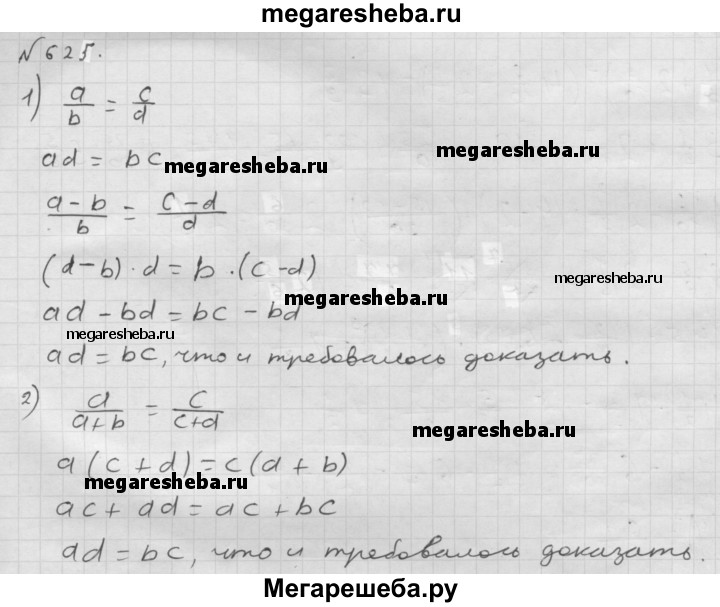 megaresheba.ru
№ 625.
1) a/b = c/d
ad = bc megaresheba.ru megaresheba.ru
(a - b)/b = (c - d)/d
(a - b) · d = b · (c - d) megaresheba.ru
megaresheba.ru
ad - bd = bc - bd
megaresheba.ru
ad = bc, что и требовалось доказать.
2) a/(a+b) = c/(c+d)
megaresheba.ru
a(c + d) = c(a + b)
megaresheba.ru
ac + ad = ac + bc
ad = bc, что и требовалось доказать.
Мегарешеба.ру